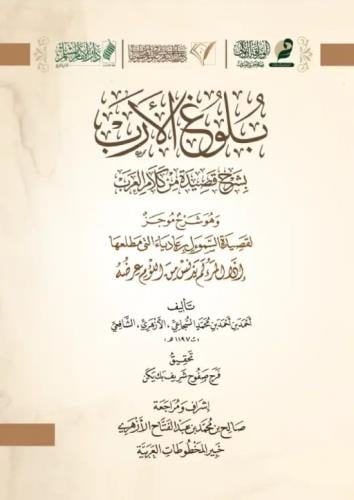 بُلُوغُ الأَرَبْ
بِشَرْحِ قَصِيدَةٍ مِنْ كَلَامِ العَرَبْ
وَهُوَ شَرْحٌ مُوجَزٌ
لقَصِيدَةِ السَّمَوْأَلِ بْنِ عَادِيَاءَ التي مَطْلَعُهَا
إِذَا المَرْءُ لَمْ يَدْنَسْ مِنَ اللُّؤْمِ عِرْضُهُ
تَأْلِيفُ
أَحْمَدَ بْنِ أَحْمَدَ بْنِ مُحَمَّدٍ السُّجَاعِيِّ، الأَزْهَرِيِّ، الشَّافِعِيِّ
(ت ١١٩٧ هـ)
تَحْقِيقُ
فَرَج صَفُّوح شَرِيف بَك يَكَن
إِشْرَافُ وَمُرَاجَعَةُ
صَالِح بْنِ مُحَمَّدِ بْنِ عَبْدِ الفَتَّاحِ الأَزْهَرِيِّ
خَبِيرِ المَخْطُوطَاتِ العَرَبِيَّةِ